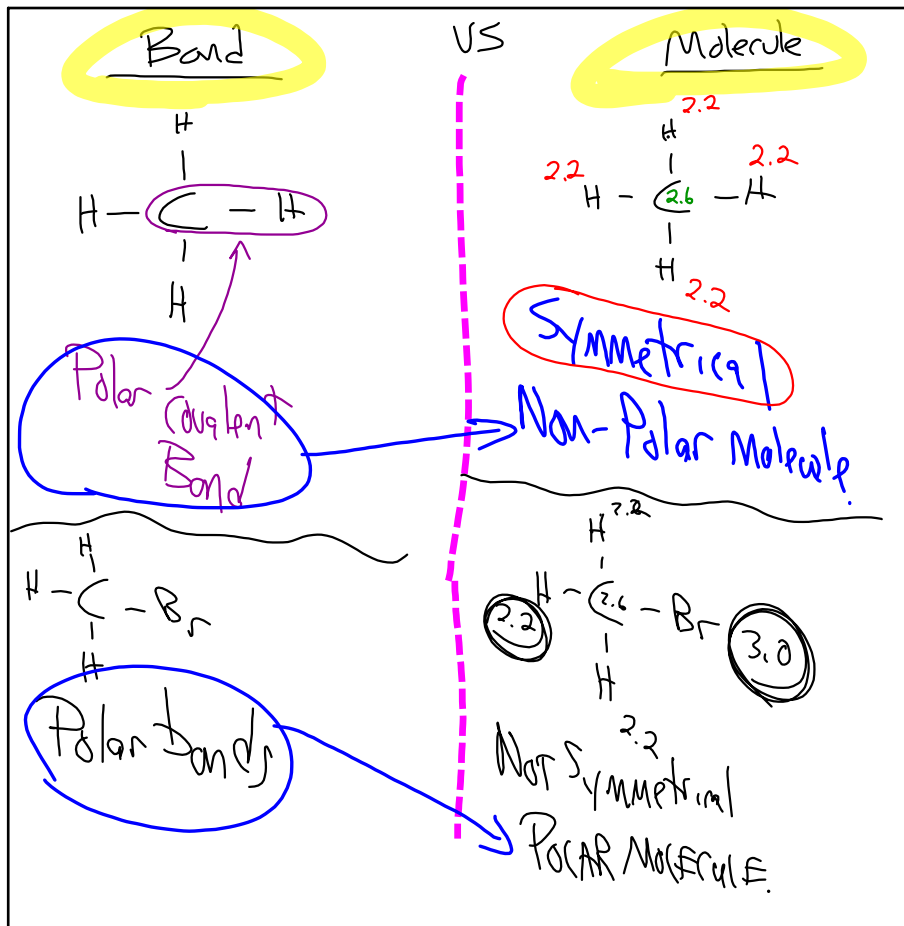 Bond VS Molecule
H
H - C - H
H
Polar
Covalent
Bond
H 2.2
2.2 H - C 2.6 - H 2.2
H 2.2
Symmetrical
Non-Polar Molecule.
H
H - C - Br
H
Polar bonds
H 2.2
2.2 H - C 2.6 - Br 3.0
H
2.2
Not Symmetrical
POLAR MOLECULE.